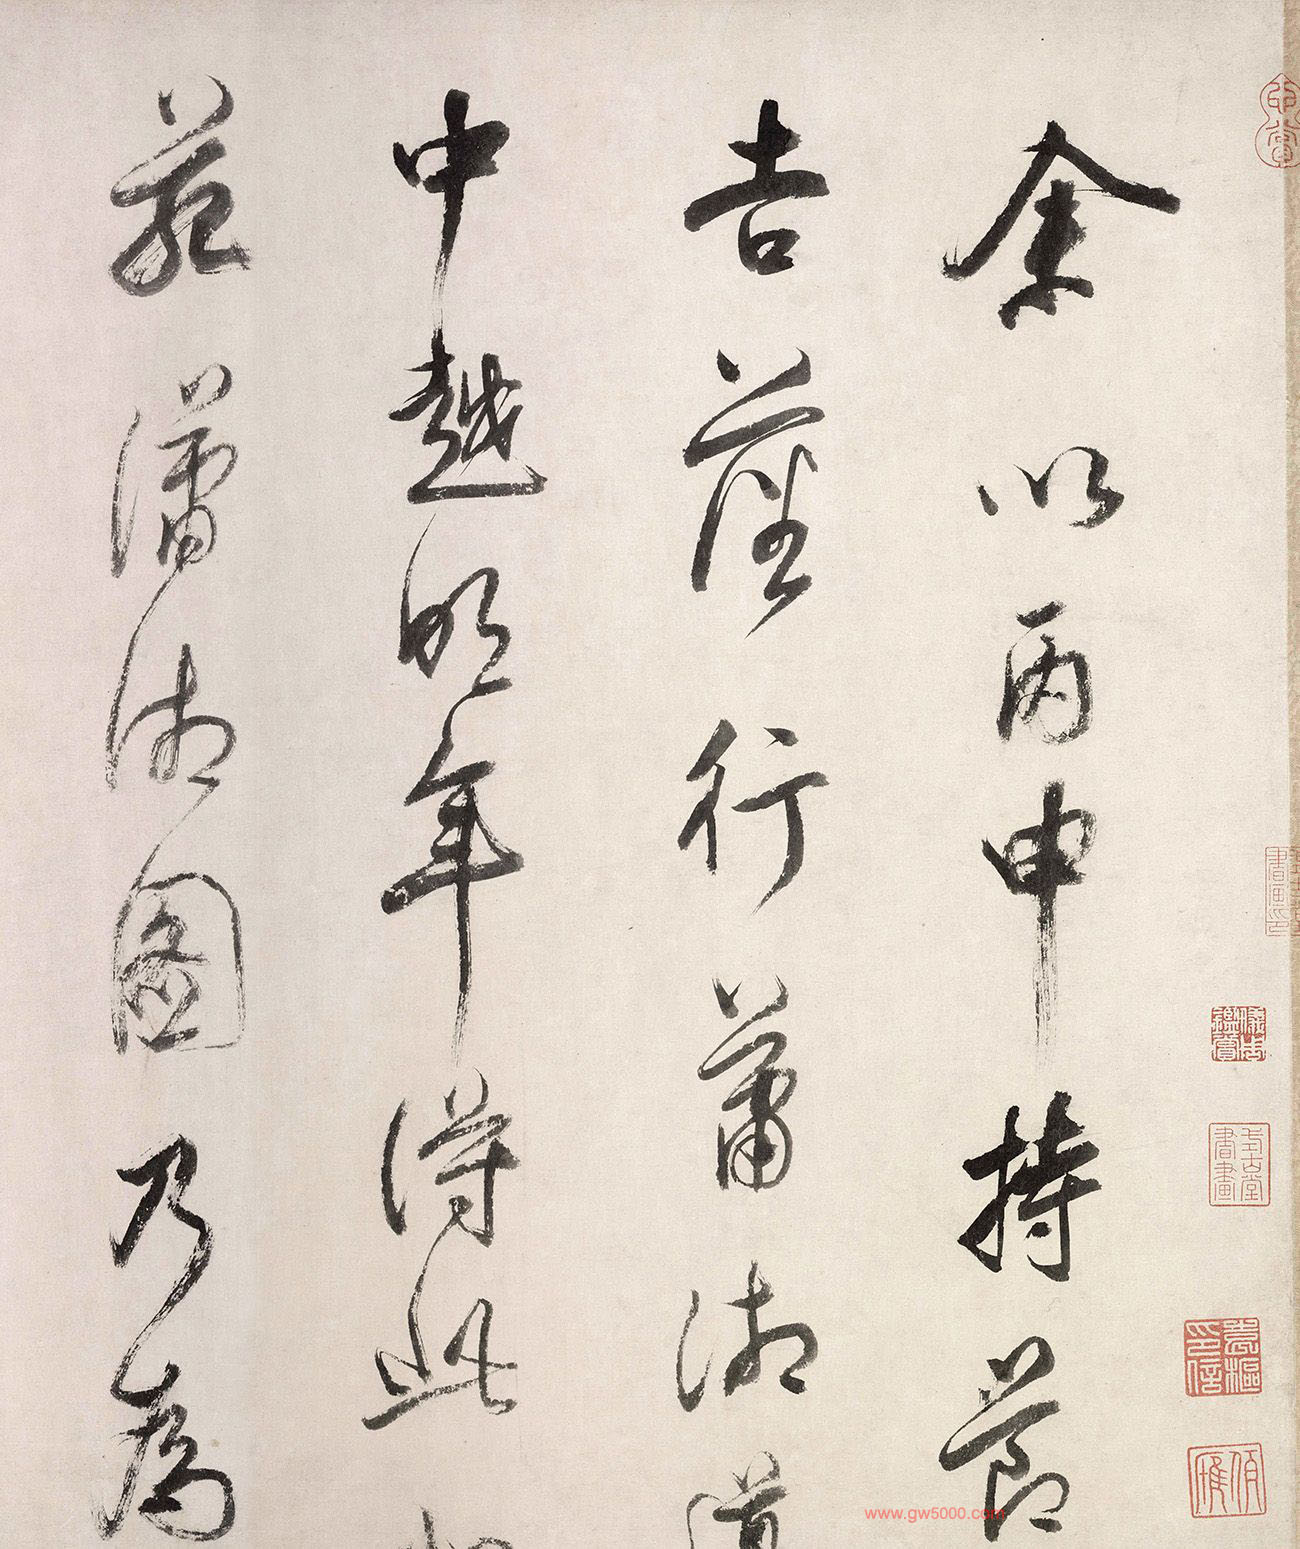 余以丙申持節
吉藩行蕭湘道
中越明年得此
北苑瀟湘圖乃為
www.gw5000.com
袁樞印信